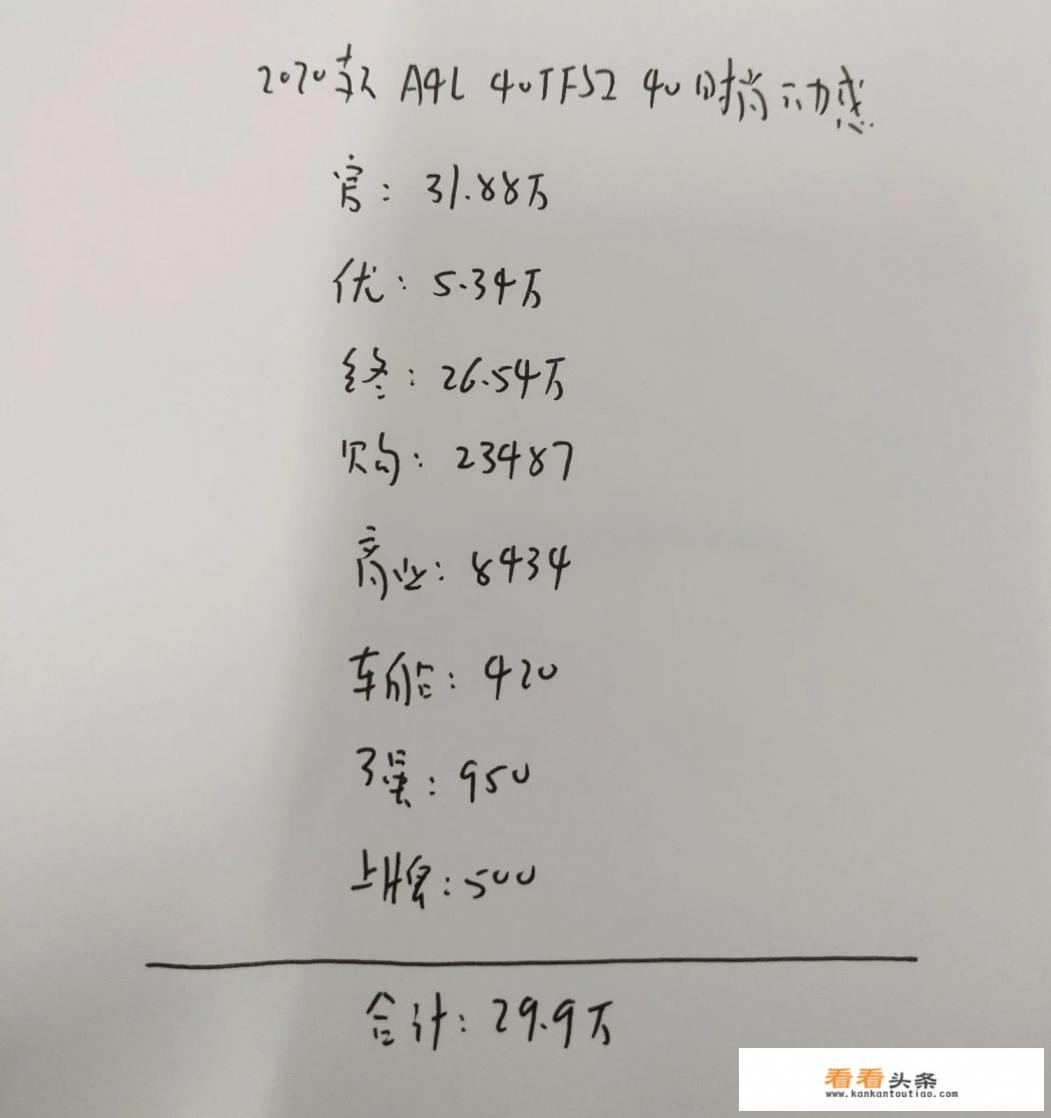 2020款 A4L 40TFSI 40时尚动感
官：31.88万
优：5.34万
终：26.54万
购：23487
商业：8434
车船：420
交强：950
上牌：500
合计：29.9万
看看头条
www.kankantoutiao.com